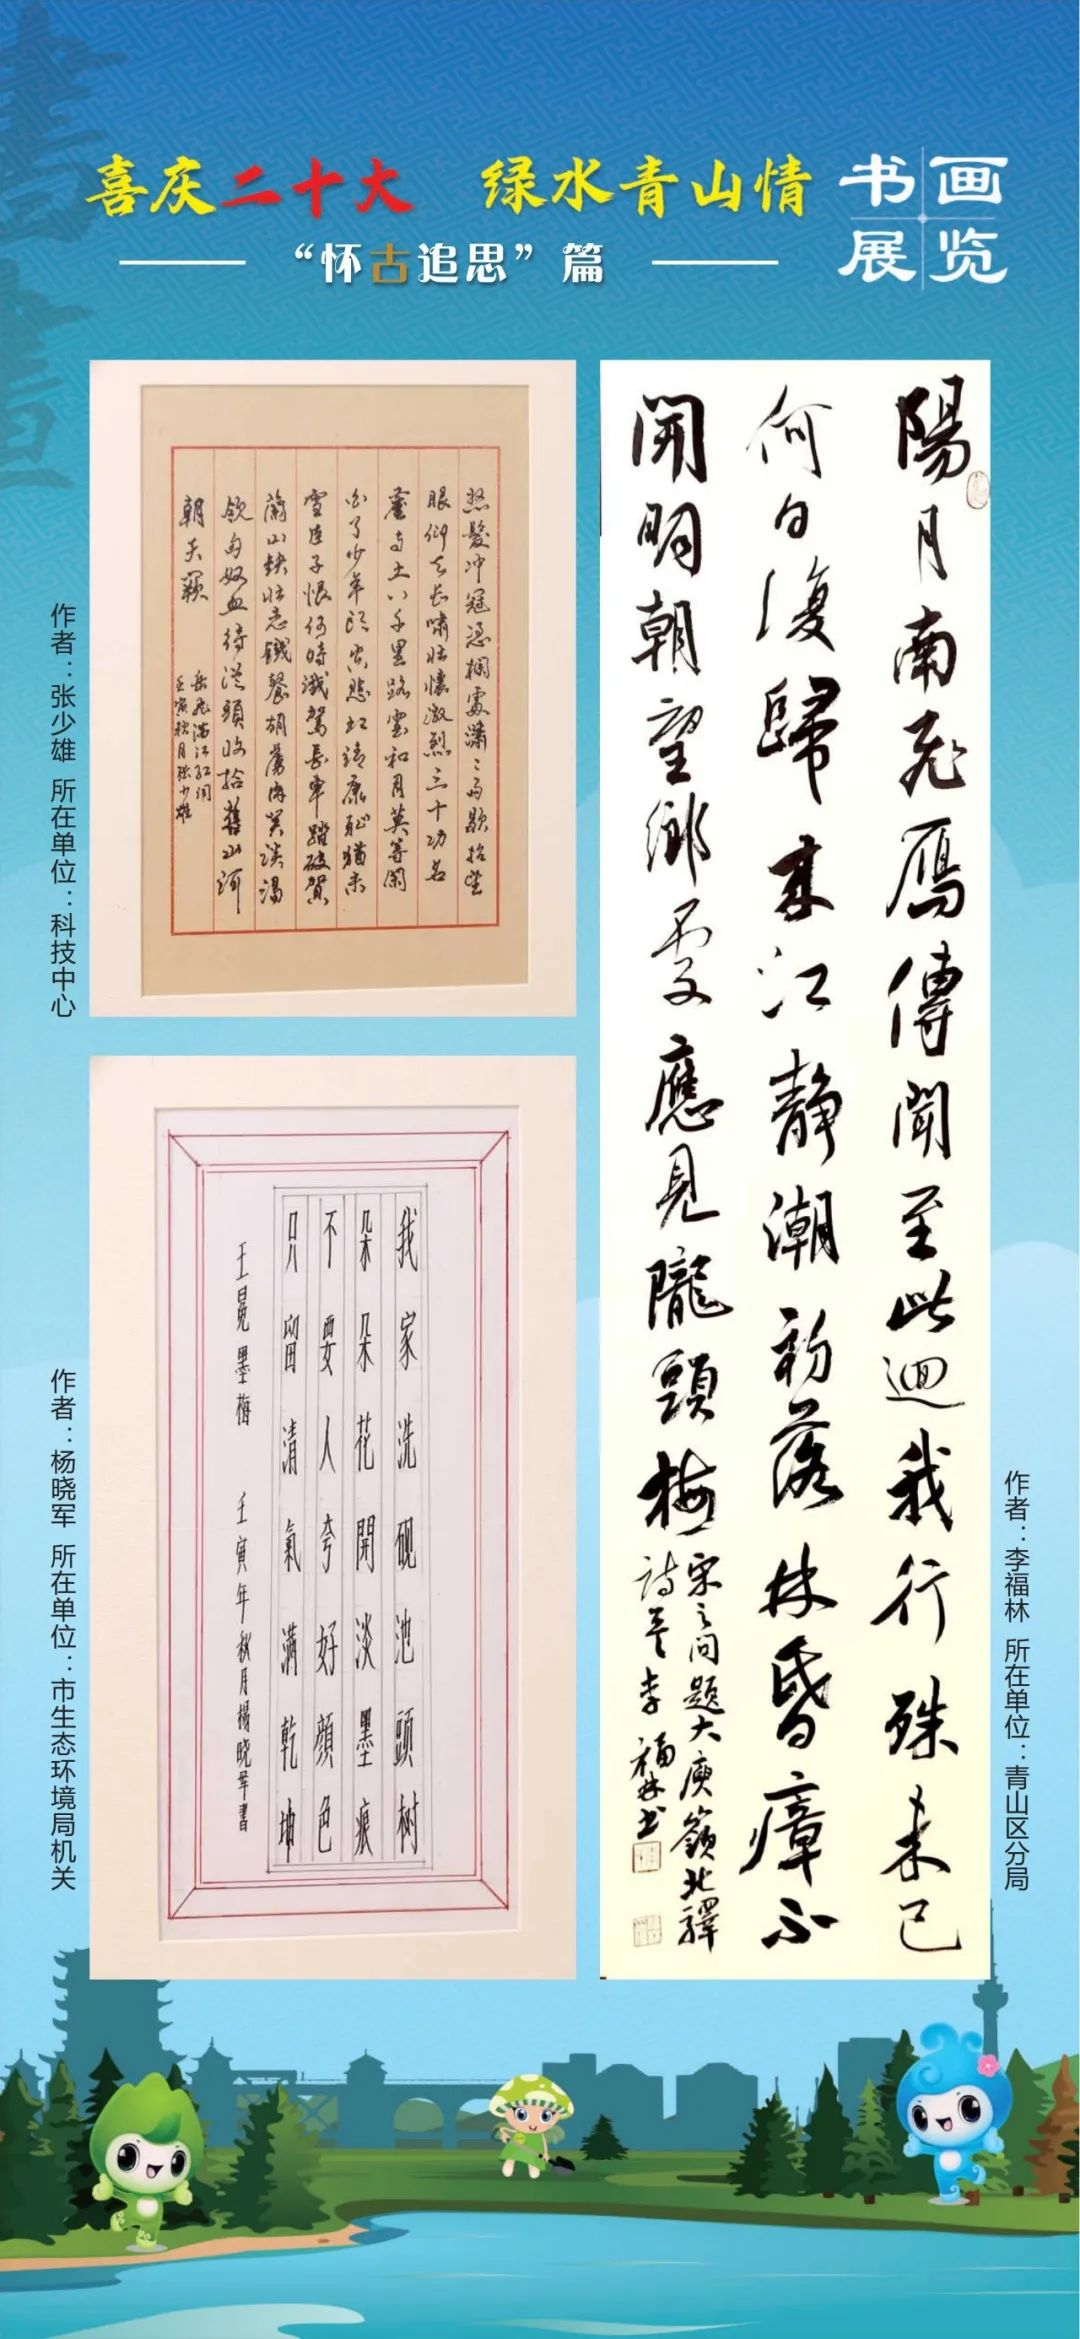 喜庆二十大 绿水青山情
书画
展览
“怀古追思”篇
怒髮冲冠憑欄處瀟〻雨歇抬望
眼仰天長嘯壯懷激烈三十功名
塵与土八千里路雲和月莫等閑
白了少年頭空悲切靖康恥猶未
雪臣子恨何時滅駕長車踏破賀
蘭山缺壯志饑餐胡虜肉笑談渴
飲匈奴血待從頭收拾舊山河
朝天闕
岳飛滿江紅詞
壬寅秋月張少雄
作者：张少雄 所在单位：科技中心
陽月南飛雁傳聞至此迴我行殊未已
何日復歸来江静潮初落林昏瘴不
開明朝望鄉處應見隴頭梅
宋之问題大庾嶺北驛
詩 李福林书
作者：李福林 所在单位：青山区分局
我家洗硯池頭树
朵朵花開淡墨痕
不要人夸好顔色
只留清氣满乾坤
王冕墨梅 壬寅年秋月楊晓军書
作者：杨晓军 所在单位：市生态环境局机关